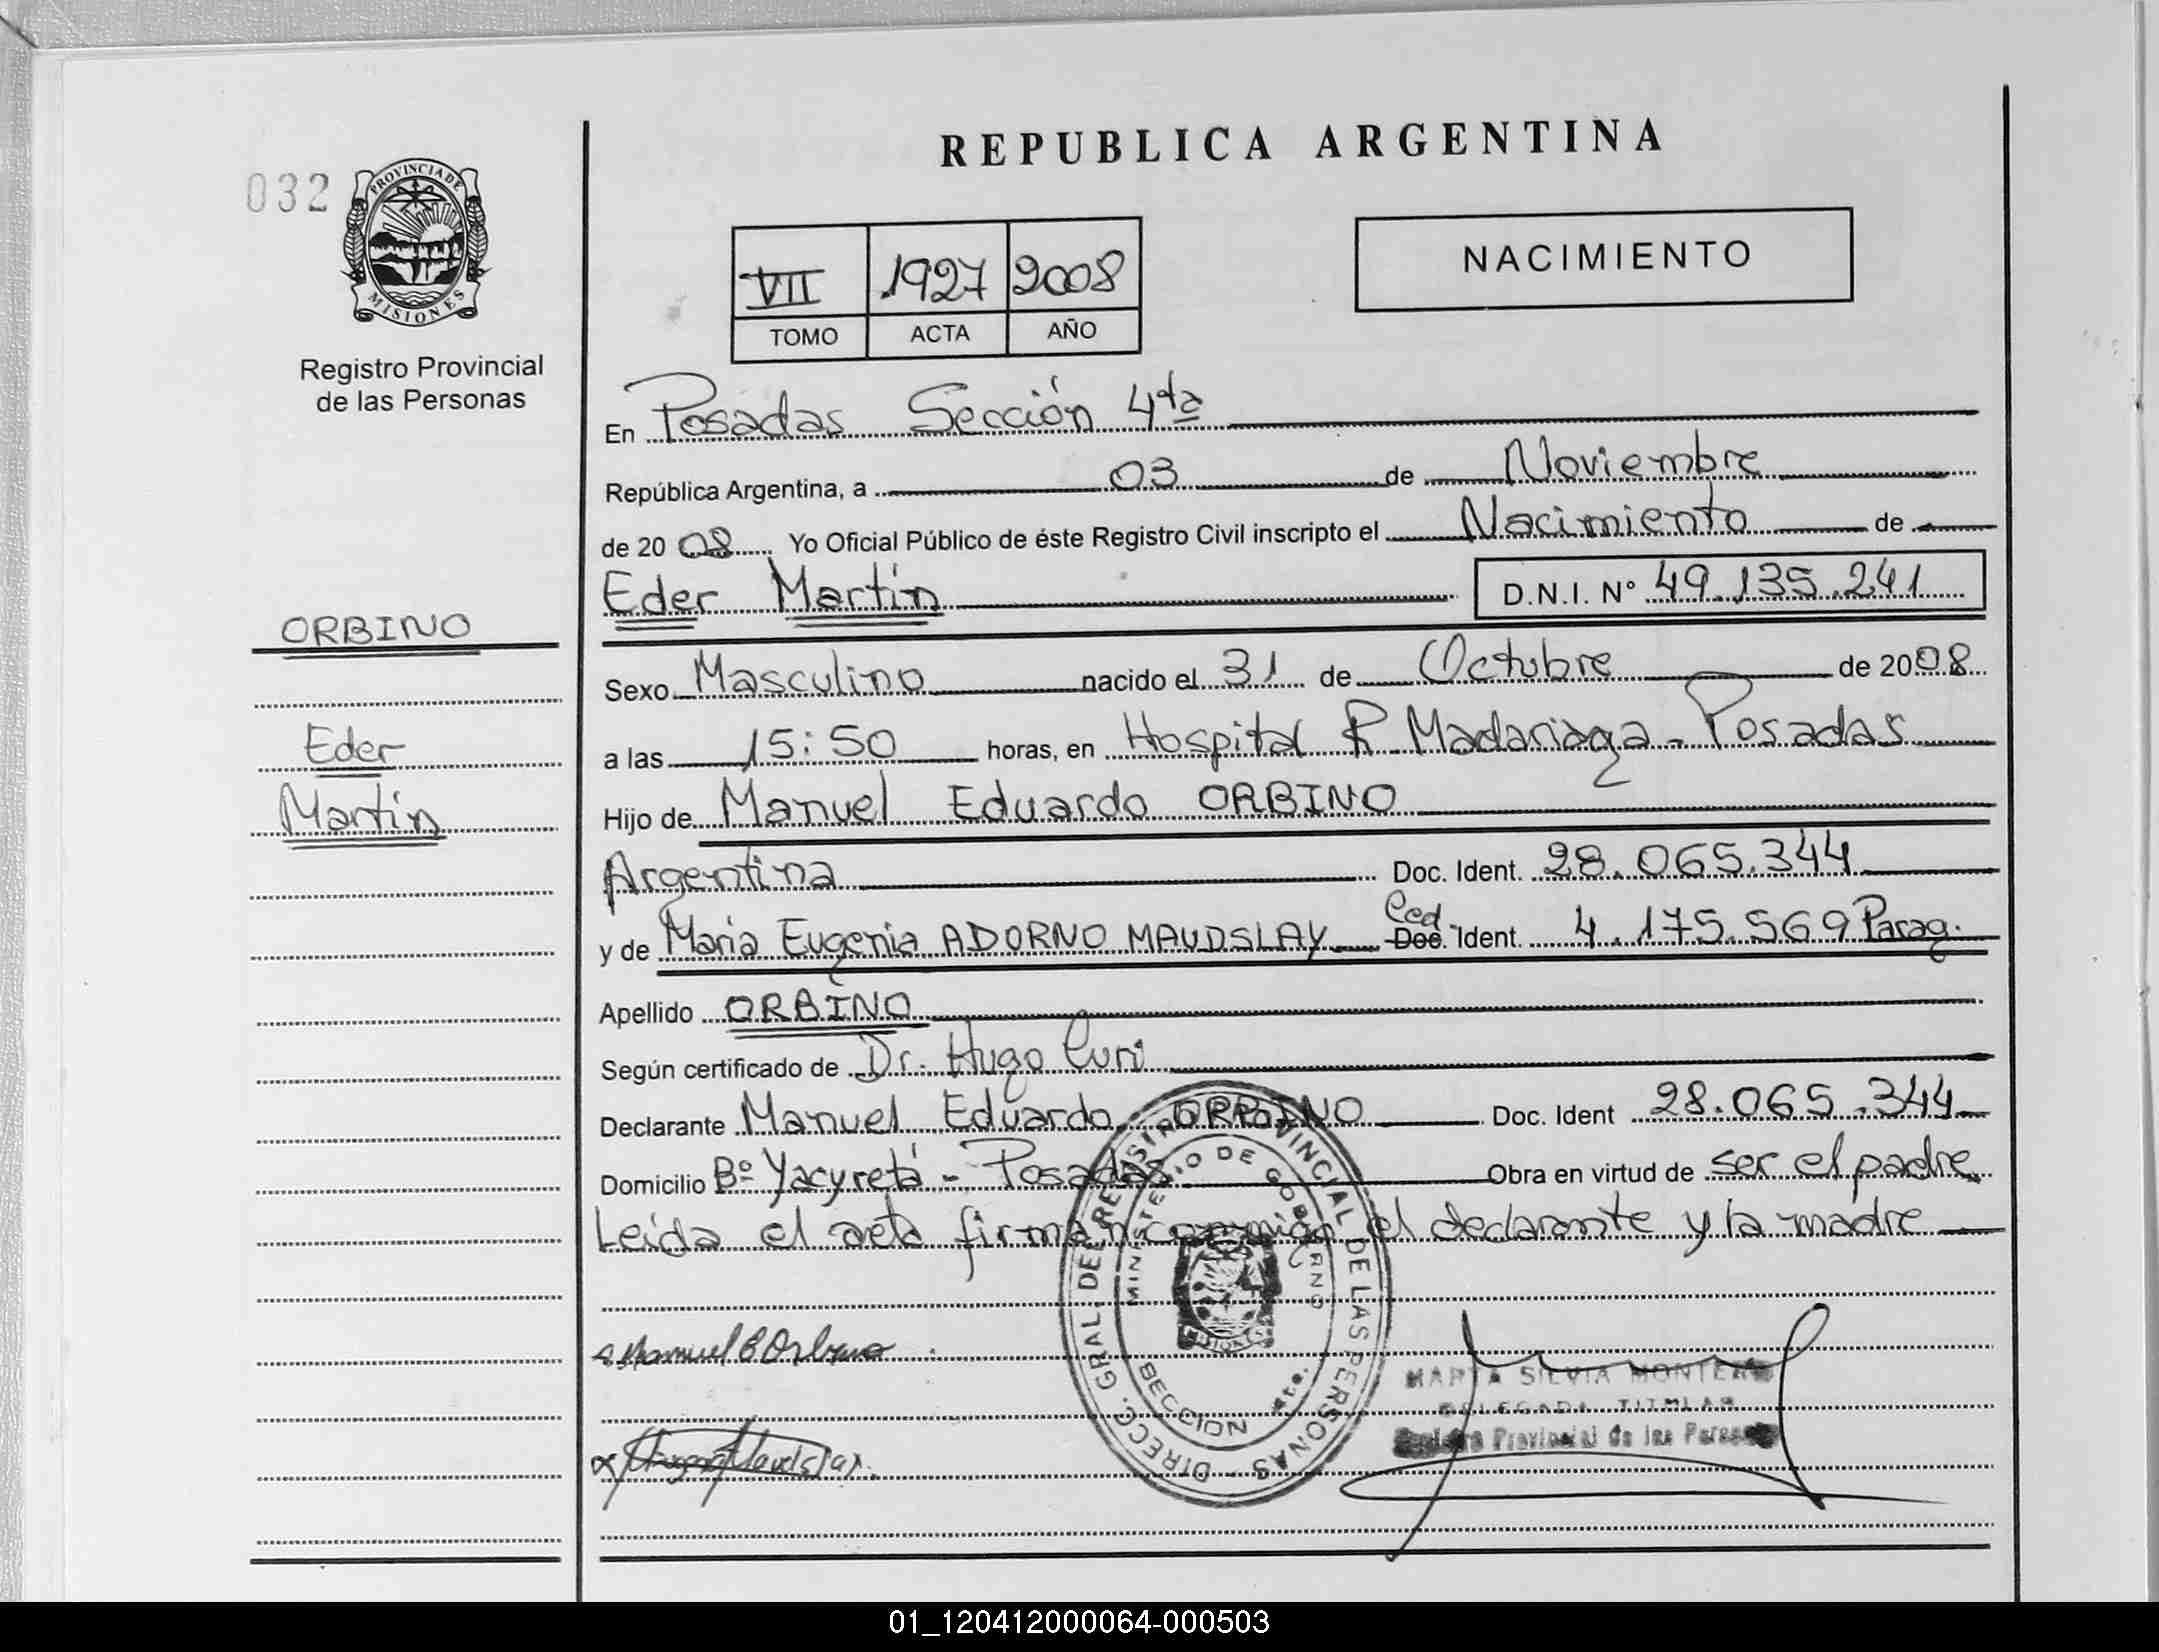 REPUBLICA ARGENTINA
032
PROVINCIA DE
MISIONES
Registro Provincial
de las Personas
VII 1927 2008
TOMO ACTA AÑO
NACIMIENTO
En Posadas Sección 4ta
República Argentina, a 03 de Noviembre
de 20 08 Yo Oficial Público de éste Registro Civil inscripto el Nacimiento de
Eder Martin D.N.I. Nº 49.135.241
ORBINO
Eder
Martin
Sexo Masculino nacido el 31 de Octubre de 2008
a las 15:50 horas, en Hospital R Madariaga - Posadas
Hijo de Manuel Eduardo ORBINO
Argentina Doc. Ident. 28.065.344
y de Maria Eugenia ADORNO MAUDSLAY Ced Doc. Ident. 4.175.569 Parag.
Apellido ORBINO
Según certificado de Dr. Hugo Curi
Declarante Manuel Eduardo ORBINO Doc. Ident 28.065.344
Domicilio Bº Yacyretá - Posadas Obra en virtud de ser el padre
Leida el acta firman conmigo el declarante y la madre
DIRECC. GRAL. DEL REGISTRO PROVINCIAL DE LAS PERSONAS
MINISTERIO DE GOBIERNO
SECCION 4ta.
Manuel E Orbino
MARTA SILVIA MONTERO
DELEGADA TITULAR
Registro Provincial de las Personas
01_120412000064-000503